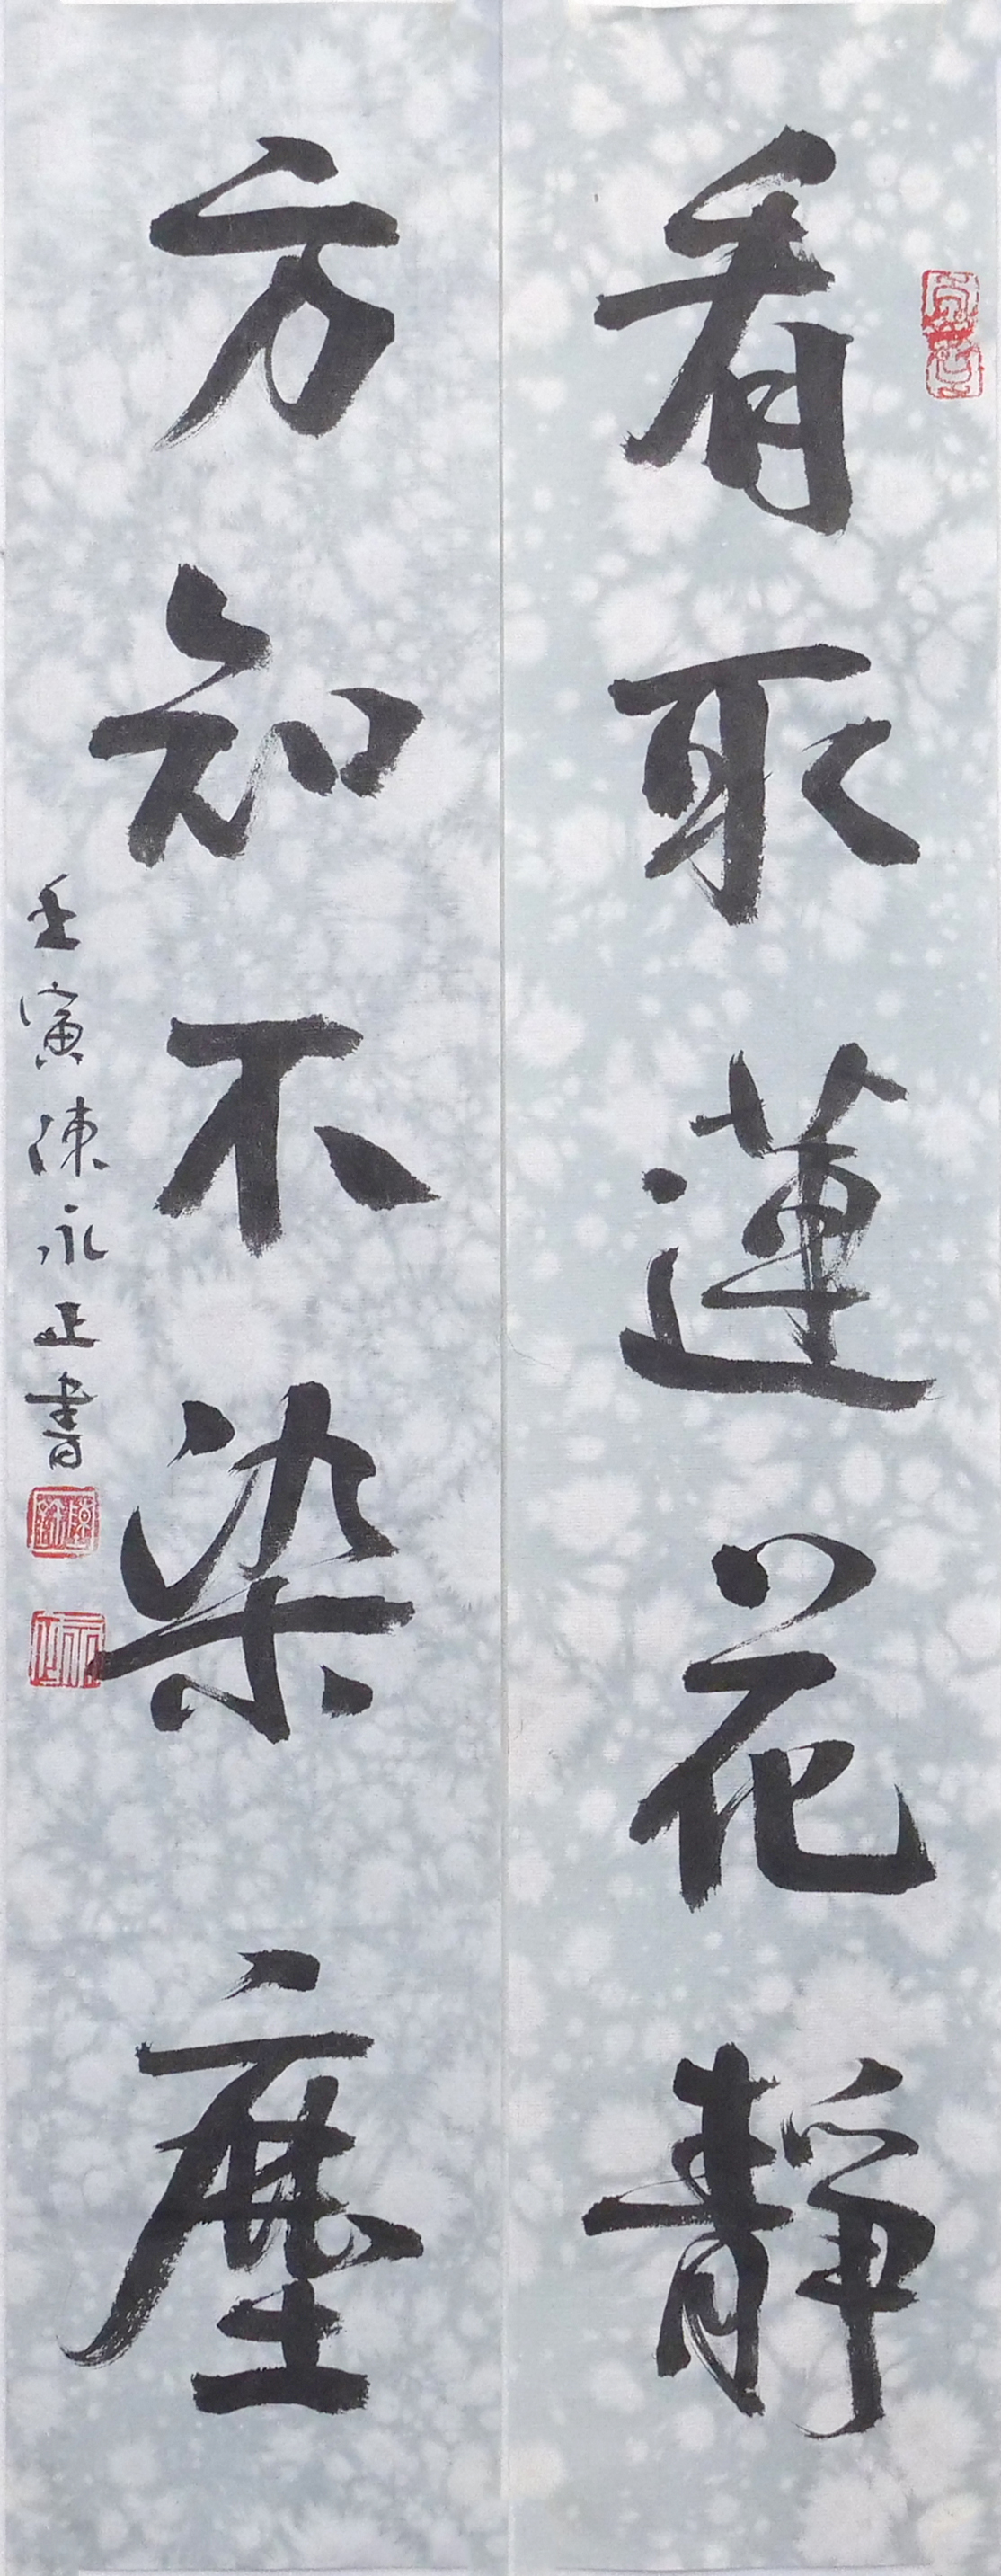 看取蓮花靜
方知不染塵
壬寅陳永正書